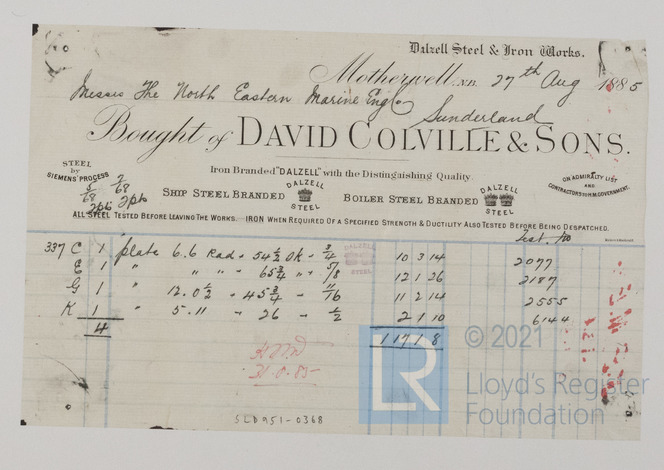 Dalzell Steel & Iron Works.
Motherwell, N.B. 27th Aug 1885
Messrs The North Eastern Marine Eng Co
Sunderland
Bought of DAVID COLVILLE & SONS.
Iron Branded "DALZELL" with the Distinguishing Quality.
STEEL
by
SIEMENS' PROCESS
SHIP STEEL BRANDED DALZELL STEEL BOILER STEEL BRANDED DALZELL STEEL
ON ADMIRALTY LIST
AND
CONTRACTORS FOR H.M. GOVERNMENT.
5/68 2/68
2pts 2pts
ALL STEEL TESTED BEFORE LEAVING THE WORKS. IRON WHEN REQUIRED OF A SPECIFIED STRENGTH & DUCTILITY ALSO TESTED BEFORE BEING DESPATCHED.
Test No
337 C 1 plate 6.6 Rad - 54 1/2 OK - 3/4 10 3 14 2077
E 1 " " " " 65 3/4 " " 5/8 12 1 26 2187
G 1 " 12.0 1/2 - 45 3/4 - 11/16 11 2 14 2555
K 1 " 5.11 - 26 - 1/2 2 1 10 6144
4 1 17 1 8
DALZELL
STEEL
SLD951-0368
LR
© 2021
Lloyd's Register
Foundation